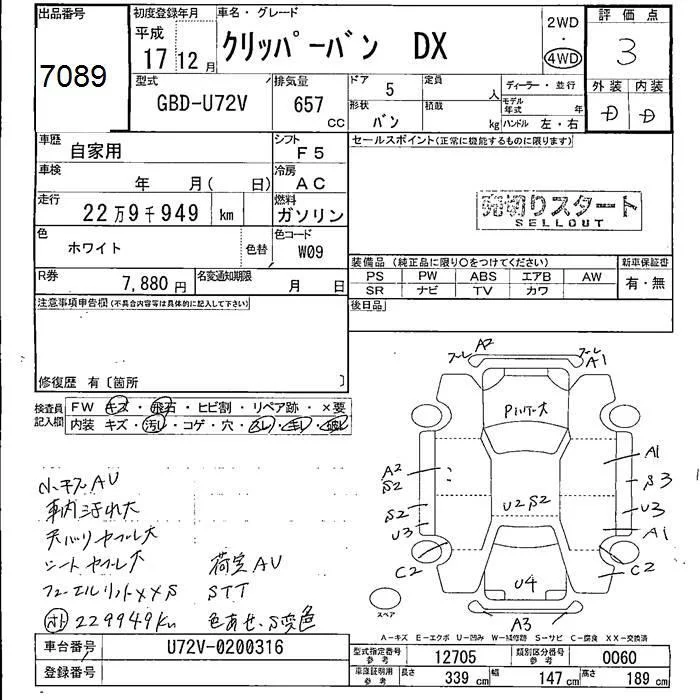 出品番号
7089
初度登録年月
平成
17 12月
車名・グレード
クリッパーバン DX
2WD
・
4WD
評価点
3
外装 内装
D D
型式
GBD-U72V
排気量
657
CC
ドア
5
定員
人
形状
バン
積載
kg
ディーラー・並行
モデル年式
年
ハンドル 左・右
車歴
自家用
シフト
F5
車検
年 月( 日)
冷房
AC
走行
22万9千949 km
燃料
ガソリン
色
ホワイト
色替
色コード
W09
R券
7,880円
名変通知期限
月 日
セールスポイント(正常に機能するものに限ります)
売切りスタート
SELLOUT
装備品(純正品に限り○をつけてください)
PS PW ABS エアB AW
SR ナビ TV カワ
新車保証書
有・無
後日品
注意事項申告欄(不具合内容等は具体的に記入して下さい)
修復歴 有〔箇所 〕
検査員記入欄
FW キズ・飛石・ヒビ割・リペア跡・×要
内装 キズ・汚レ・コゲ・穴・スレ・キレ・破レ
小キズAU
車内汚れ大
天バリヤブレ大
シートヤブレ大
荷室AU
STT
229949Km
色あせ、S変色
A2
A1
Pハゲ大
A2
S2
S2
U3
C2
U2S2
U4
A1
S3
U3
A1
C2
A3
スペア
A-キズ E-エクボ U-凹み W-補修跡 S-サビ C-腐食 XX-交換済
車台番号
U72V-0200316
登録番号
型式指定番号
参考
12705
類別区分番号
参考
0060
車庫証明用
参考
長さ 339 cm 幅 147 cm 高さ 189 cm